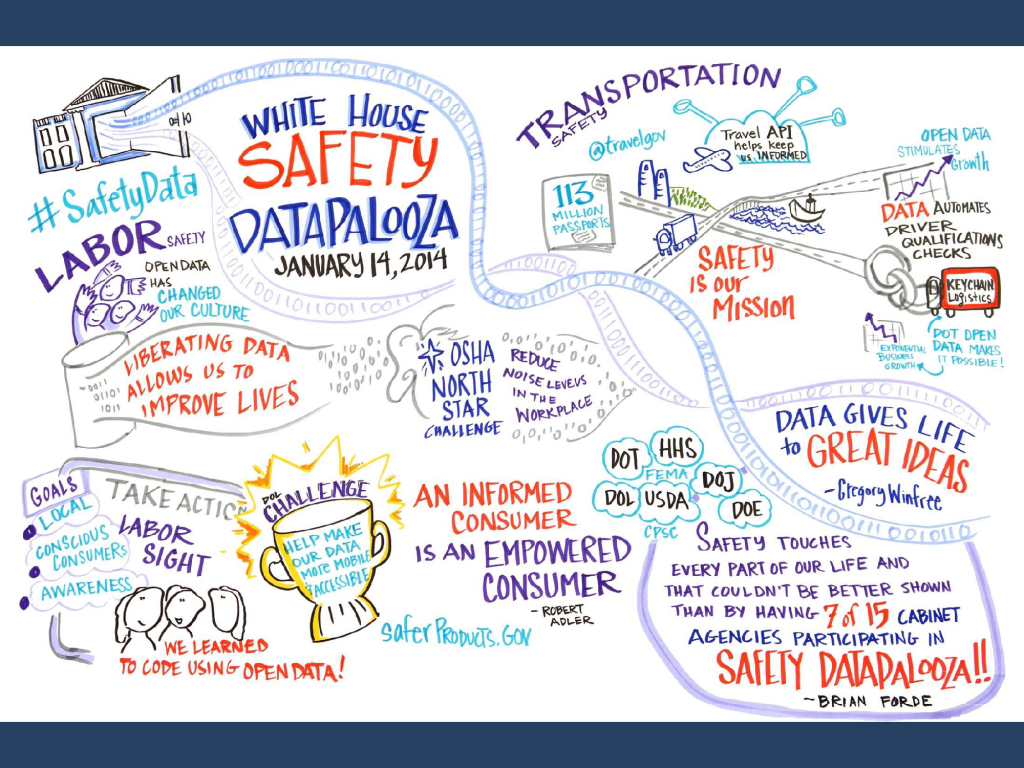 WHITE HOUSE
SAFETY
DATAPALOOZA
JANUARY 14, 2014
#SafetyData
LABOR SAFETY
OPEN DATA
HAS
CHANGED
OUR CULTURE
LIBERATING DATA
ALLOWS US TO
IMPROVE LIVES
OSHA
NORTH
STAR
CHALLENGE
REDUCE
NOISE LEVELS
IN THE
WORKPLACE
TRANSPORTATION
SAFETY
@travelgov
Travel API
helps keep
us INFORMED
113
MILLION
PASSPORTS
OPEN DATA
STIMULATES
Growth
DATA AUTOMATES
DRIVER
QUALIFICATIONS
CHECKS
SAFETY
IS OUR
MISSION
KEYCHAIN
Logistics
EXPONENTIAL
BUSINESS
GROWTH
DOT OPEN
DATA MAKES
IT POSSIBLE!
DATA GIVES LIFE
to GREAT IDEAS
- Gregory Winfree
GOALS
LOCAL
CONSCIOUS
CONSUMERS
AWARENESS
TAKE ACTION
LABOR
SIGHT
WE LEARNED
TO CODE USING OPEN DATA!
DOL
CHALLENGE
HELP MAKE
OUR DATA
MORE MOBILE
ACCESSIBLE
AN INFORMED
CONSUMER
IS AN EMPOWERED
CONSUMER
- ROBERT
ADLER
saferProducts.Gov
DOT
HHS
FEMA
DOJ
DOL
USDA
DOE
CPSC
SAFETY TOUCHES
EVERY PART OF OUR LIFE AND
THAT COULDN'T BE BETTER SHOWN
THAN BY HAVING 7 of 15 CABINET
AGENCIES PARTICIPATING IN
SAFETY DATAPALOOZA!!
~BRIAN FORDE